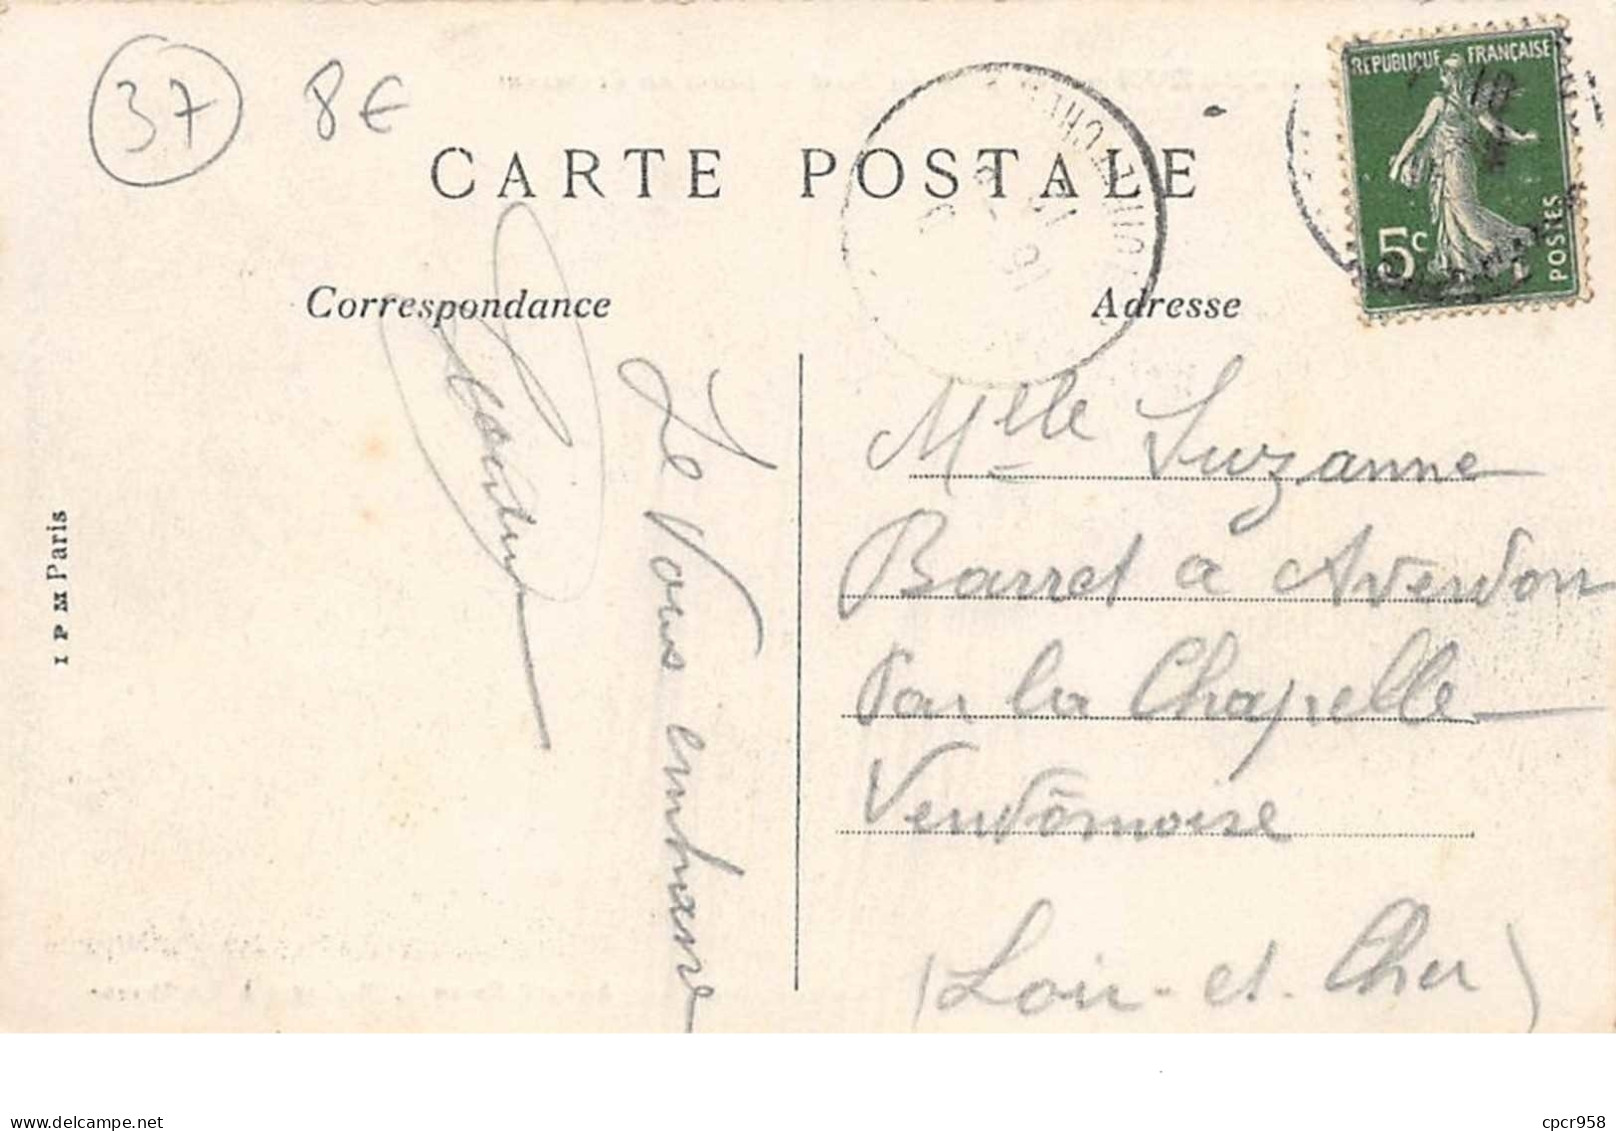 37 8€
CARTE POSTALE
RÉPUBLIQUE FRANÇAISE
5c
POSTES
Correspondance
Adresse
Je Vous embrasse
Mlle Suzanne
Barret a Averdon
Par la Chapelle
Vendômoise
(Loir-et-Cher)
I P M Paris
cpcr958